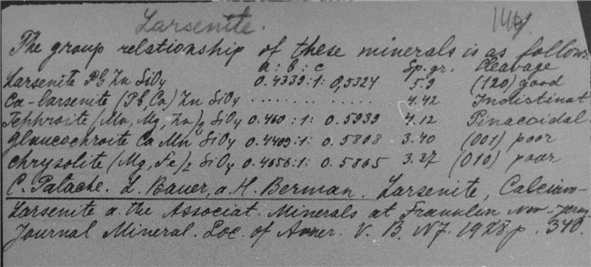 Larsenite.
The group relationship of these minerals is as follows
a : b : c Sp. gr. Cleavage
Larsenite Pb Zn SiO4 0.4339:1: 0,5324 5.9 (120) good
Ca-larsenite (Pb, Ca) Zn SiO4 . . . . . . . . . . . 4.42 Indistinct
Tephroite (Mn, Mg, Zn)2 SiO4 0.460 :1: 0.5939 4.12 Pinacoidal
Glaucochroite Ca Mn SiO4 0.4409:1: 0.5808 3.40 (001) poor
Chrysolite (Mg, Fe)2 SiO4 0.4656:1: 0.5865 3.27 (010) poor
C. Palache. L. Bauer, a. H. Berman. Larsenite, Calcium-
Larsenite a. the Associat. Minerals at Franklin New-Jersy
Journal Mineral. Soc. of Amer. V. 13. N7. 1928 p. 340.